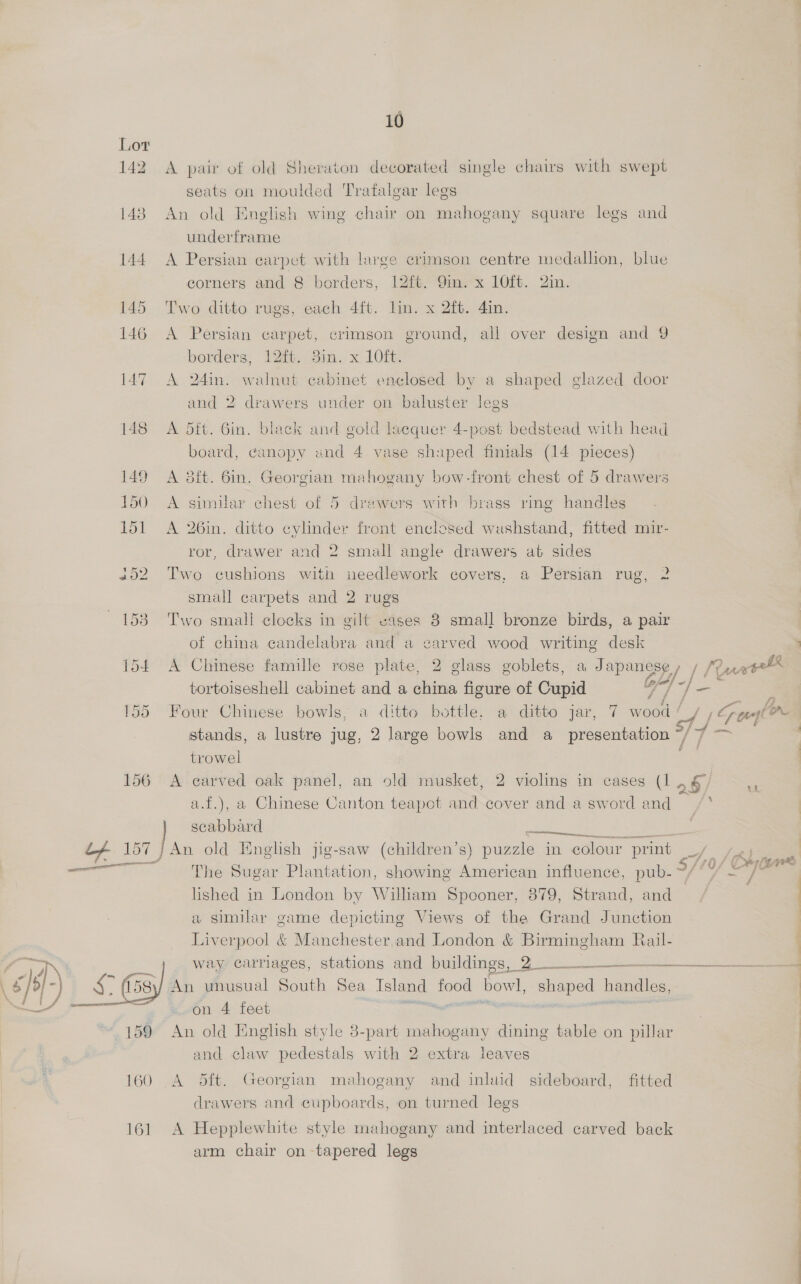 10
Lot
142 A pair of old Sheraton decorated single chairs with swept
seats on moulded Trafalgar legs
143 An old English wing chair on mahogany square legs and
underframe
144 A Persian carpet with large crimson centre medallion, blue
corners and 8 borders, 12ft. 9in. x 10ft. 2in.
145 Two ditto rugs, each 4ft. 1in. x 2ft. 4in.
146 A Persian carpet, crimson ground, all over design and 9
borders, 12ft. 3in. x 10ft.
147 A 24in. walnut cabinet enclosed by a shaped glazed door
and 2 drawers under on baluster legs
148 A 5ft. 6in. black and gold lacquer 4-post bedstead with head
board, canopy and 4 vase shaped finials (14 pieces)
149 A 3ft. 6in. Georgian mahogany bow-front chest of 5 drawers
150 A similar chest of 5 drawers with brass ring handles
151 A 26in. ditto cylinder front enclosed washstand, fitted mir-
ror, drawer and 2 small angle drawers at sides
152 Two cushions with needlework covers, a Persian rug, 2
small carpets and 2 rugs
153 Two small clocks in gilt cases 3 small bronze birds, a pair
of china candelabra and a carved wood writing desk
154 A Chinese famille rose plate, 2 glass goblets, a Japanese
tortoiseshell cabinet and a china figure of Cupid
155 Four Chinese bowls, a ditto bottle, a ditto jar, 7 wood
stands, a lustre jug, 2 large bowls and a presentation
trowel
156 A carved oak panel, an old musket, 2 violins in cases (1
a.f.), a Chinese Canton teapot and cover and a sword and
scabbard
157 An old English jig-saw (children's) puzzle in colour print
The Sugar Plantation, showing American influence, pub-
lished in London by William Spooner, 379, Strand, and
a similar game depicting Views of the Grand Junction
Liverpool & Manchester and London & Birmingham Rail-
way carriages, stations and buildings, 2
158 An unusual South Sea Island food bowl, shaped handles,
on 4 feet
159 An old English style 3-part mahogany dining table on pillar
and claw pedestals with 2 extra leaves
160 A 5ft. Georgian mahogany and inlaid sideboard, fitted
drawers and cupboards, on turned legs
161 A Hepplewhite style mahogany and interlaced carved back
arm chair on tapered legs